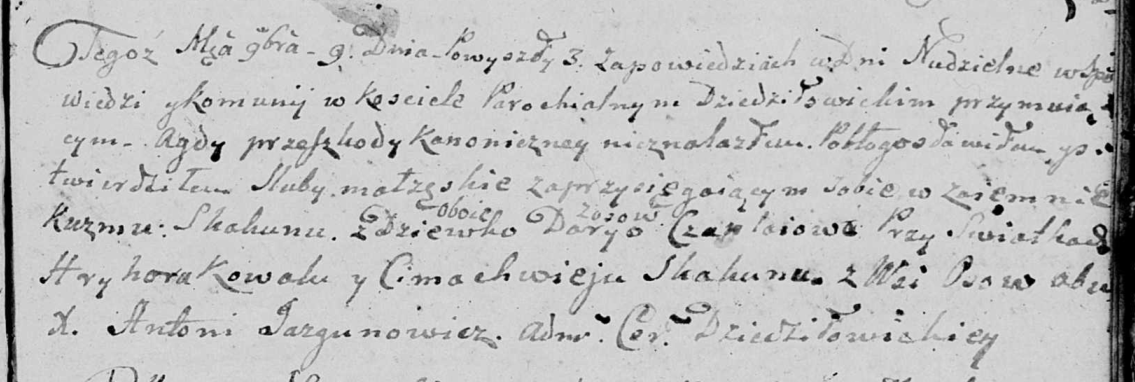 Tegoż Mca 9bra - 9. Dnia - Powyszły 3. Zapowiedziach w Dni Nudzielne w Spo
wiedzi y Komunij w Kosciele Parochialnym Dziedziłowickim przymuią
cym - Agdy przeszkody Kanoniczney nieznalazłem. Pobłogosławiłem, y
twierdziłem Sluby małzęskie zaprzysięgaiącym sobie w zaiemnie
oboie zosow
Kuzmu: Skakunu. z Dziewko Daryo Czaplaiowa Przy Swiatkach
Hryhora Kowalu y Cimachwieju Skakunu. z Wsi Osow obu
X. Antoni Jazgunowicz. Adm. Cer. Dziedziłowickiey